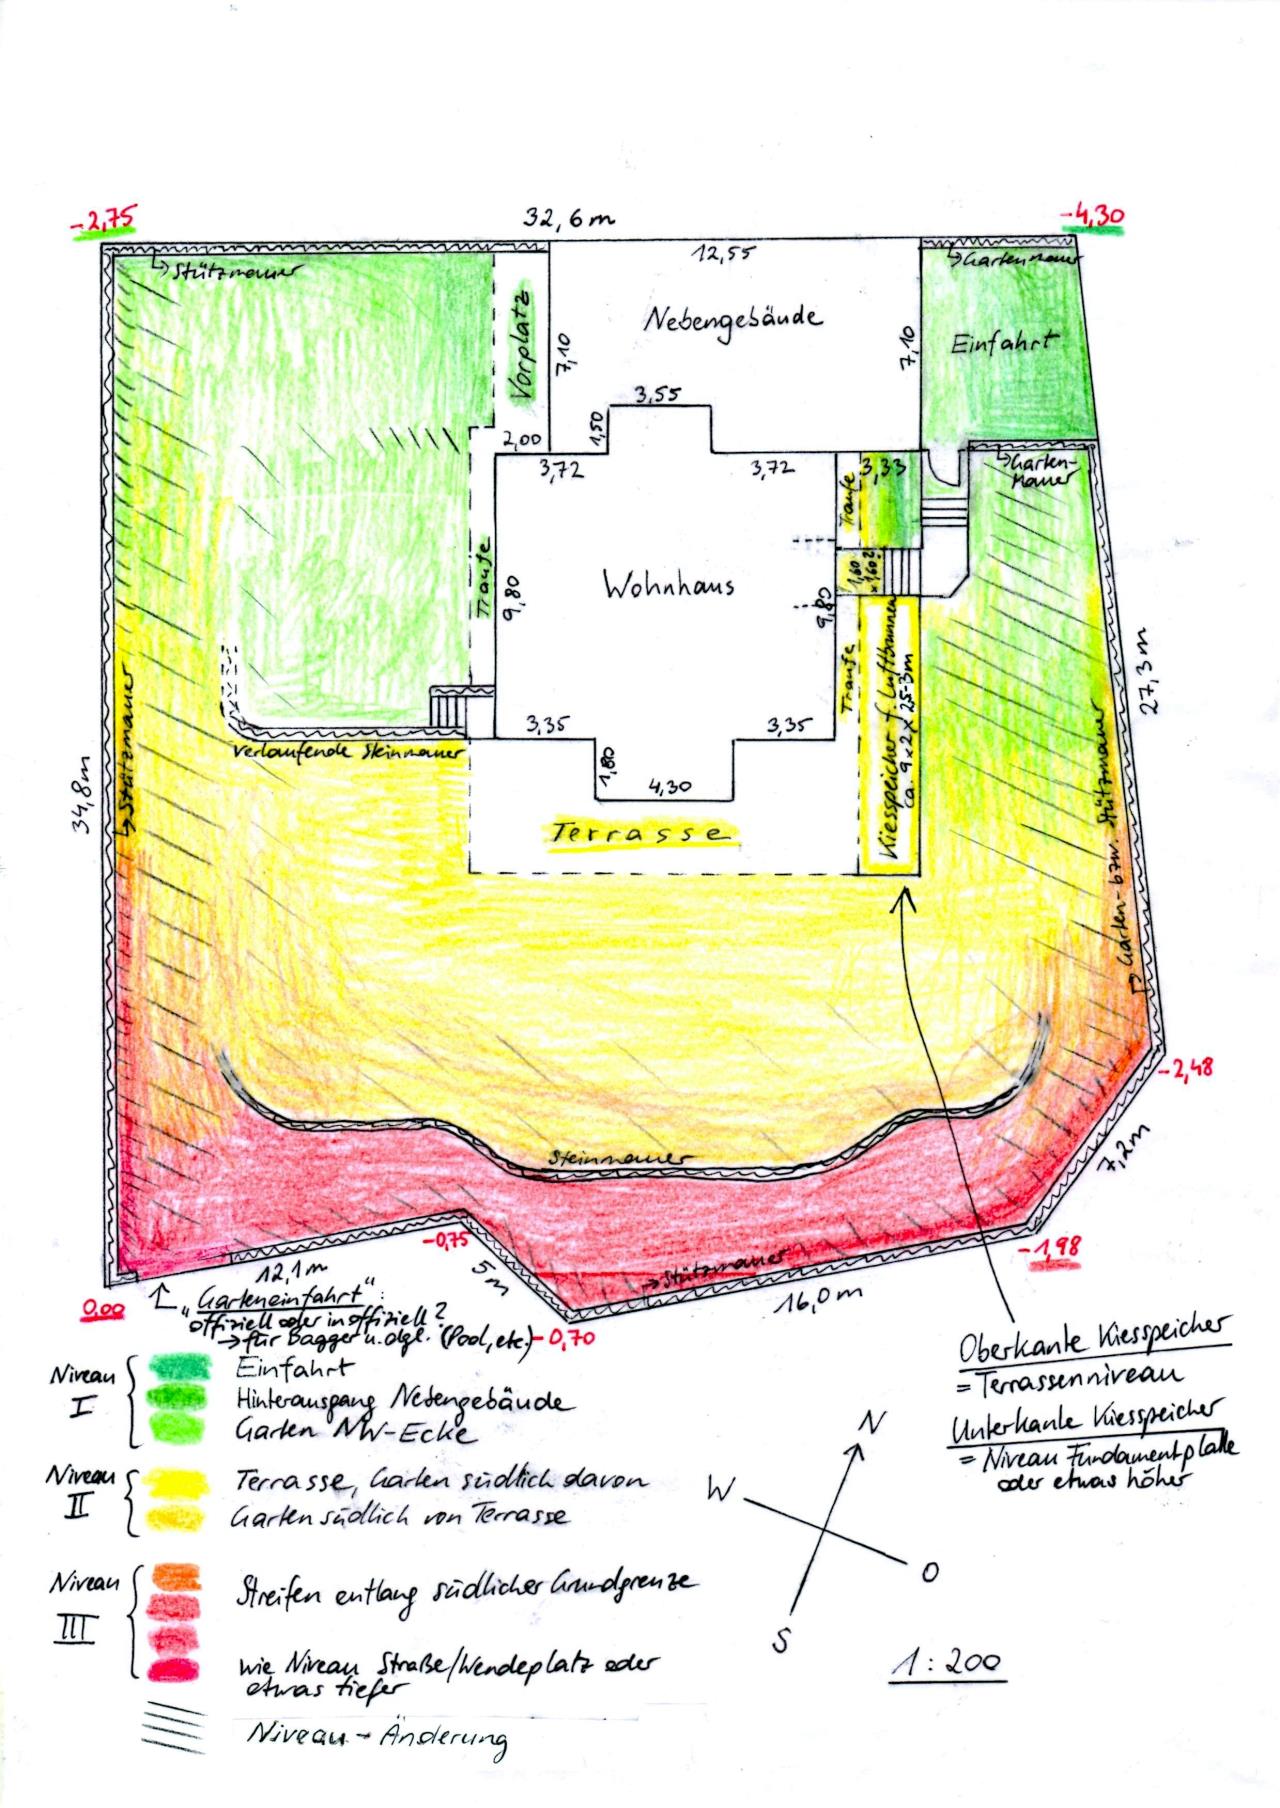 -2,75
32,6 m
-4,30
Stützmauer
12,55
Gartenmauer
Nebengebäude
Vorplatz
7,10
7,10
Einfahrt
3,55
1,50
2,00
3,72
3,72
3,33
Garten-
mauer
Traufe
Traufe
9,80
Wohnhaus
9,80
1,60
x 1,60?
Traufe
Kiesspeicher f. Luftbrunnen
ca. 9 x 2 x 2,5-3m
27,3 m
3,35
3,35
verlaufende Steinmauer
1,80
4,30
Terrasse
34,8 m
Stützmauer
Garten- bzw. Stützmauer
-2,48
7,2 m
Steinmauer
-0,75
-1,98
12,1 m
5 m
Stützmauer
16,0 m
0,00
"Garteneinfahrt":
offiziell oder inoffiziell?
→ für Bagger u. dgl. (Pool, etc.)
-0,70
Oberkante Kiesspeicher
= Terrassenniveau
Unterkante Kiesspeicher
= Niveau Fundamentplatte
oder etwas höher
Niveau
I
Einfahrt
Hinterausgang Nebengebäude
Garten NW-Ecke
Niveau
II
Terrasse, Garten südlich davon
Garten südlich von Terrasse
Niveau
III
Streifen entlang südlicher Grundgrenze
wie Niveau Straße/Wendeplatz oder
etwas tiefer
Niveau-Änderung
N
W
O
S
1:200